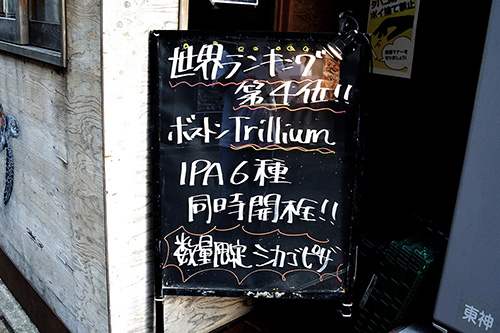 世界ランキング
第4位!!
ボストンTrillium
IPA6種
同時開栓!!
数量限定シカゴピザ
ポイ捨て禁止
東神